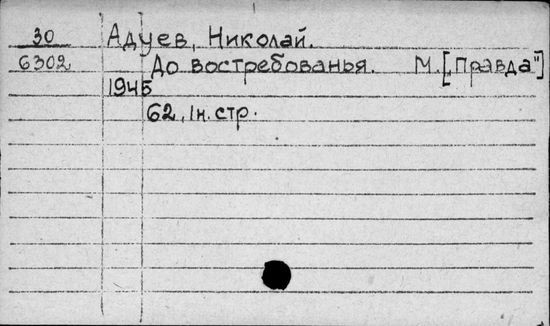 30 Адуев, Николай.
6302 До востребованья. М. ["Правда"]
1945
62, 1н. стр.